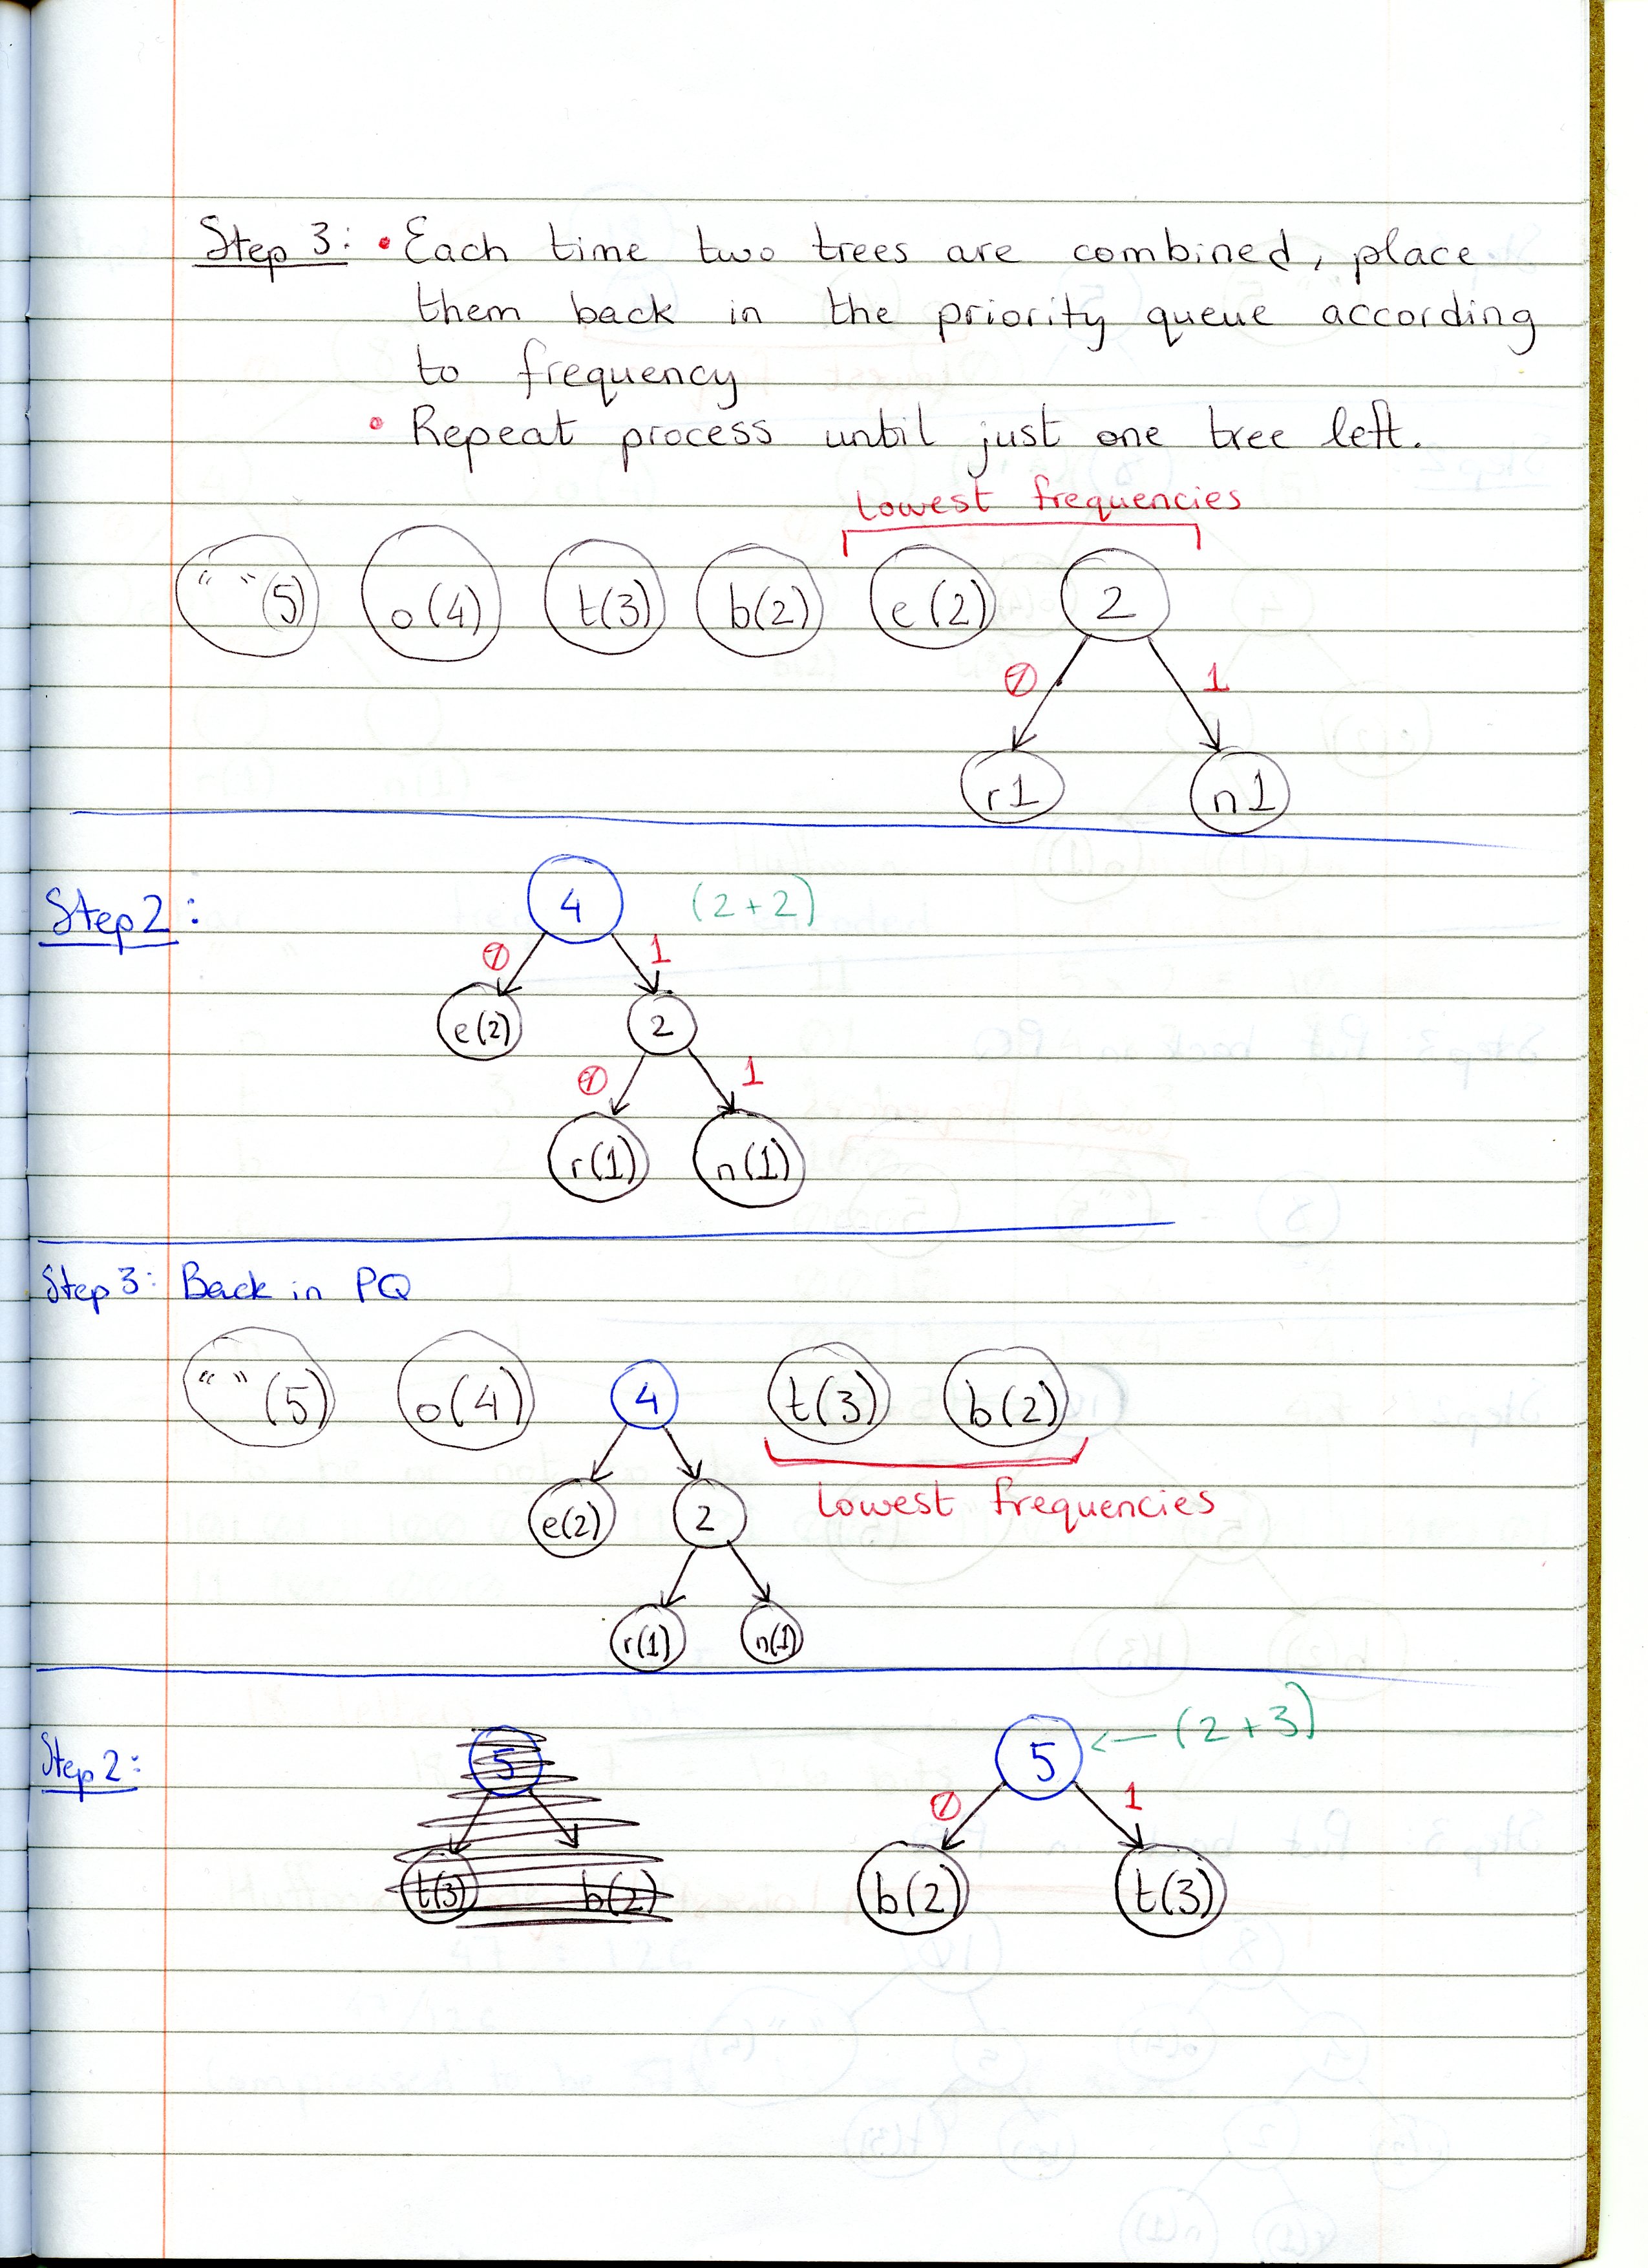 Step 3: • Each time two trees are combined, place
them back in the priority queue according
to frequency
• Repeat process until just one tree left.
Lowest frequencies
“ ”(5) o(4) t(3) b(2) e(2) 2
0 1
r1 n1
Step 2: 4 (2+2)
0 1
e(2) 2
0 1
r(1) n(1)
Step 3: Back in PQ
“ ”(5) o(4) 4 t(3) b(2)
e(2) 2 Lowest frequencies
r(1) n(1)
Step 2: 5 5 ← (2+3)
0 1
t(3) b(2) b(2) t(3)